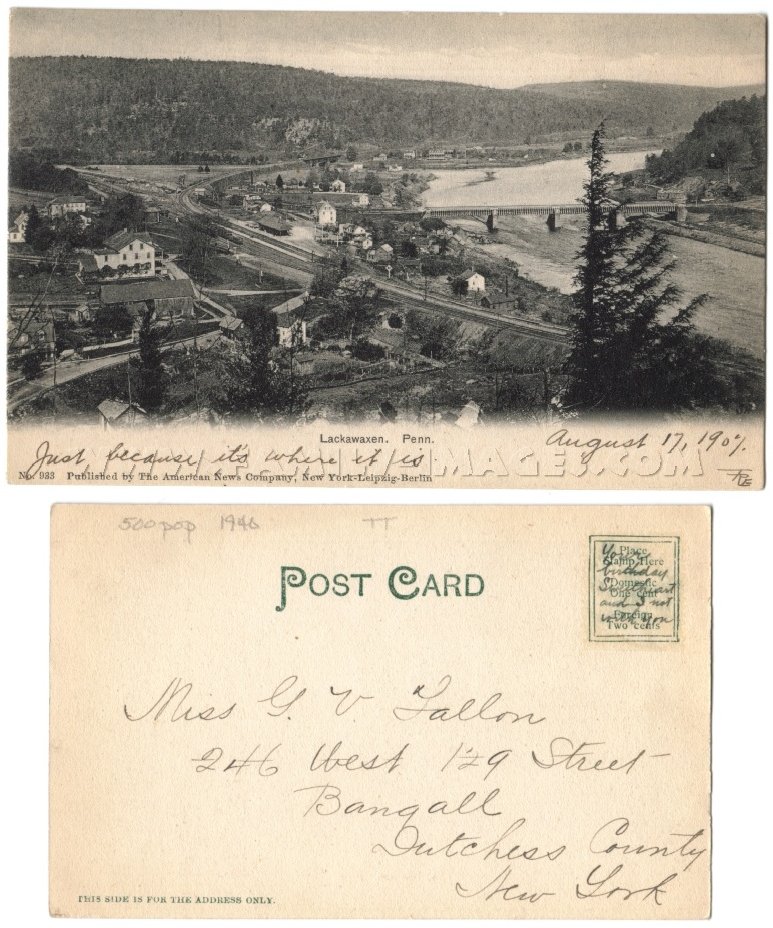 Lackawaxen. Penn.
August 17, 1907.
Just because it's where it is
No. 933 Published by The American News Company, New York-Leipzig-Berlin
500 pop 1940 TT
POST CARD
Place
Stamp Here
Domestic
One cent
Foreign
Two cents
Yours
birthday
Sweetheart
and I not
with you
Miss G. V. Fallon
246 West 129 Street
Bangall
Dutchess County
New York
THIS SIDE IS FOR THE ADDRESS ONLY.